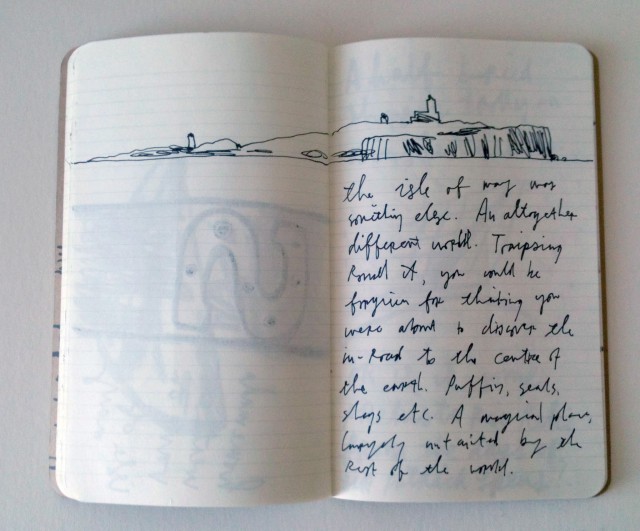 the isle of may was
something else. An altogether
different world. Traipsing
Round it, you would be
forgiven for thinking you
were about to discover the
in-Road to the centre of
the earth. Puffins, seals,
shags etc. A magical place,
largely untainted by the
Rest of the world.